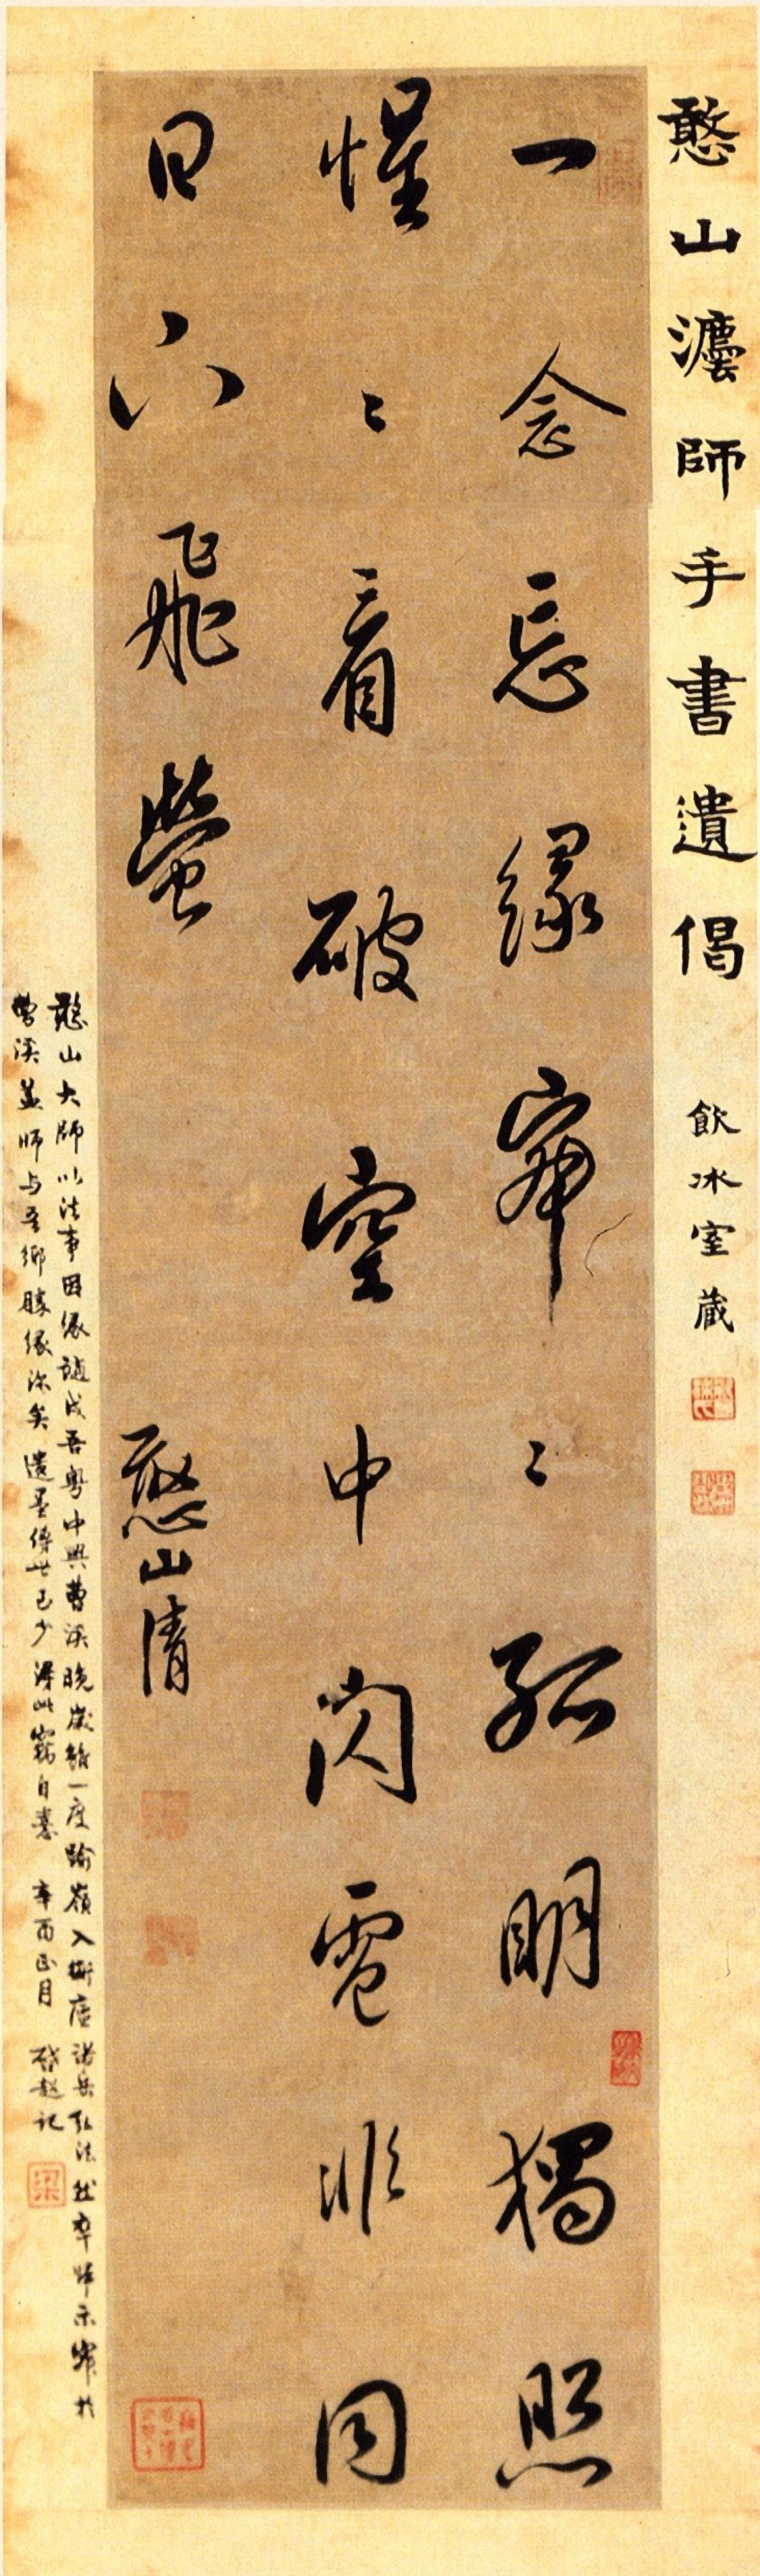 憨山灋師手書遺偈 飲冰室藏
一念忘緣寂〻孤明獨照
惺〻看破空中閃電非同
日下飛螢
憨山清
憨山大師以法事因緣謫戍吾粵中興曹溪晚歲雖一度踰嶺入衡廬諸岳弘法然卒歸示寂於
曹溪蓋師与吾鄉勝緣深矣遺墨傳世已少得此竊自喜 辛酉正月 啓超記
梁